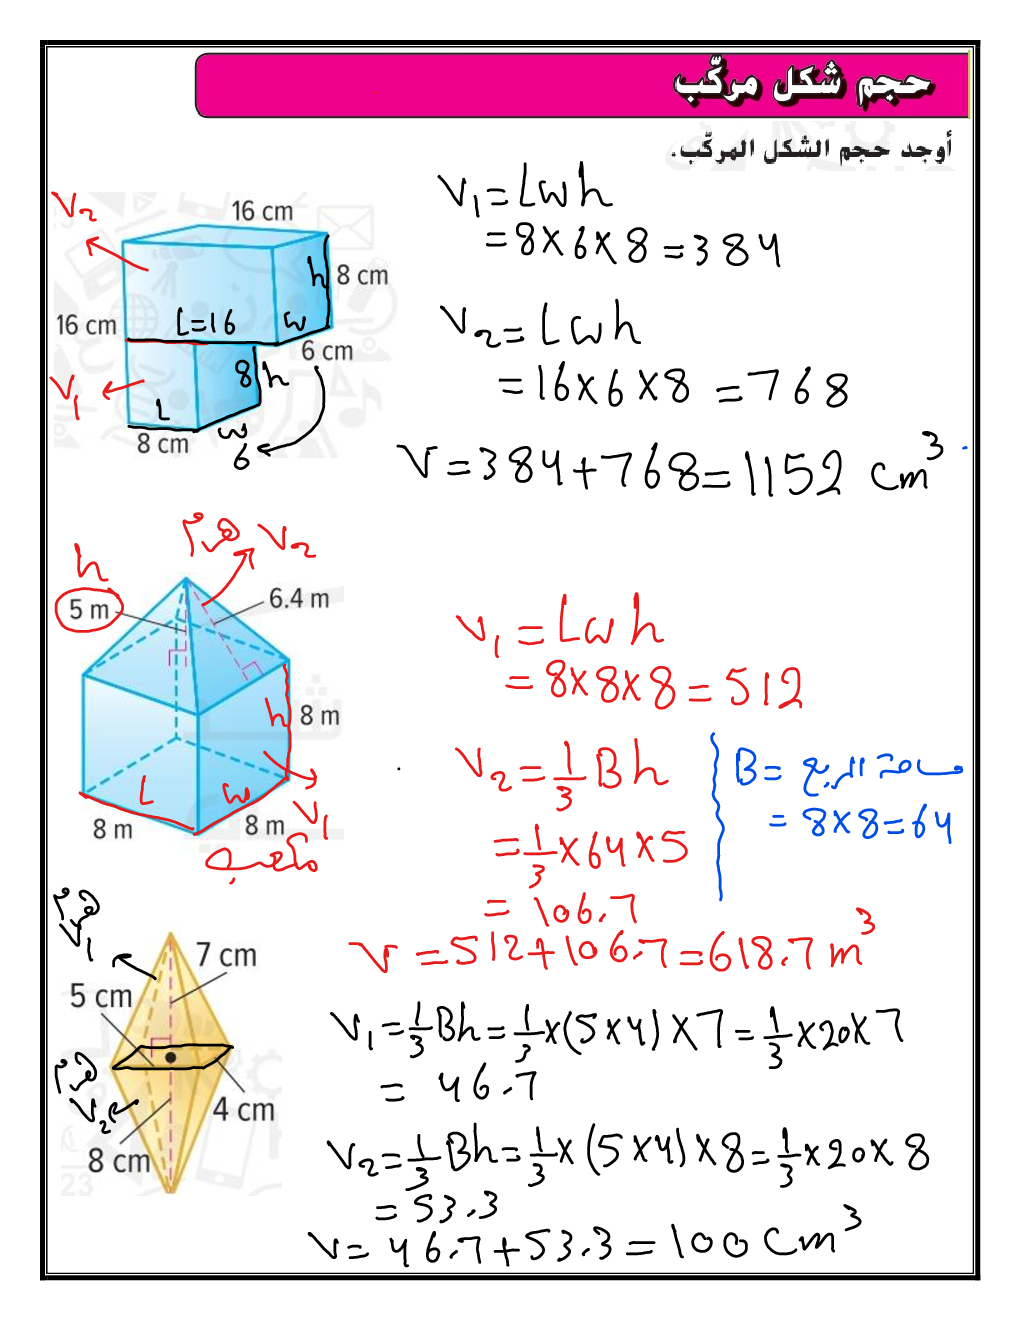 حجم شكل مركّب
أوجد حجم الشكل المركّب.
V₁ = L w h
= 8 × 6 × 8 = 384
V₂
16 cm
h 8 cm
16 cm
L=16 w
6 cm
V₁
8 h
L
w
8 cm
6
V₂ = L w h
= 16 × 6 × 8 = 768
V = 384 + 768 = 1152 cm³
هرم V₂
h
5 m
6.4 m
h 8 m
L w
8 m
8 m
V₁
مكعب
V₁ = L w h
= 8 × 8 × 8 = 512
V₂ = 1/3 B h
B = مساحة المربع
= 8 × 8 = 64
= 1/3 × 64 × 5
= 106.7
V = 512 + 106.7 = 618.7 m³
هرم
V₁
7 cm
5 cm
هرم
V₂
4 cm
8 cm
23
V₁ = 1/3 Bh = 1/3 × (5 × 4) × 7 = 1/3 × 20 × 7
= 46.7
V₂ = 1/3 Bh = 1/3 × (5 × 4) × 8 = 1/3 × 20 × 8
= 53.3
V = 46.7 + 53.3 = 100 cm³